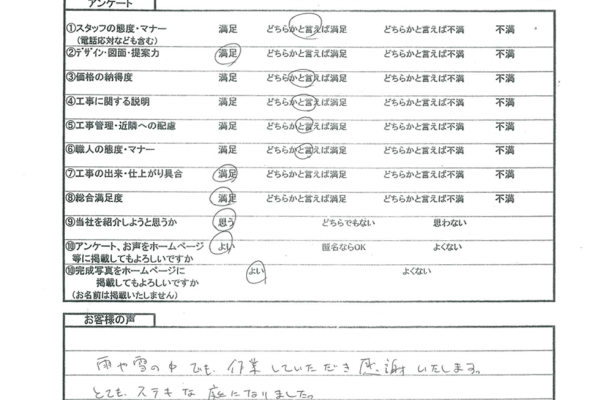 アンケート
①スタッフの態度・マナー 満足 どちらかと言えば満足 どちらかと言えば不満 不満
(電話応対なども含む)
②デザイン・図面・提案力 満足 どちらかと言えば満足 どちらかと言えば不満 不満
③価格の納得度 満足 どちらかと言えば満足 どちらかと言えば不満 不満
④工事に関する説明 満足 どちらかと言えば満足 どちらかと言えば不満 不満
⑤工事管理・近隣への配慮 満足 どちらかと言えば満足 どちらかと言えば不満 不満
⑥職人の態度・マナー 満足 どちらかと言えば満足 どちらかと言えば不満 不満
⑦工事の出来・仕上がり具合 満足 どちらかと言えば満足 どちらかと言えば不満 不満
⑧総合満足度 満足 どちらかと言えば満足 どちらかと言えば不満 不満
⑨当社を紹介しようと思うか 思う どちらでもない 思わない
⑩アンケート、お声をホームページ よい 匿名ならOK よくない
等に掲載してもよろしいですか
⑩完成写真をホームページに よい よくない
掲載してもよろしいですか
(お名前は掲載いたしません)
お客様の声
雨や雪の中でも、作業していただき感謝いたします。
とても、ステキな庭になりました。